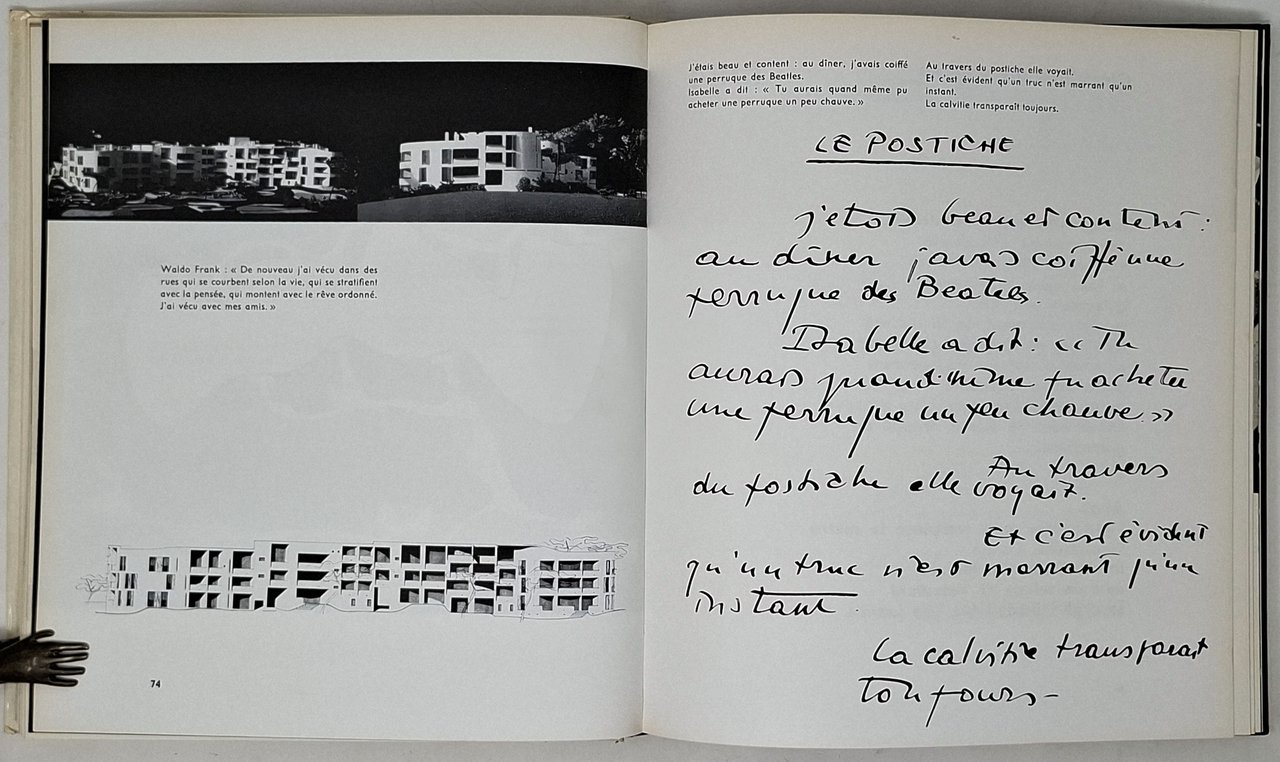 Waldo Frank : « De nouveau j'ai vécu dans des
rues qui se courbent selon la vie, qui se stratifient
avec la pensée, qui montent avec le rêve ordonné.
J'ai vécu avec mes amis. »
74
J'étais beau et content : au dîner, j'avais coiffé
une perruque des Beatles.
Isabelle a dit : « Tu aurais quand même pu
acheter une perruque un peu chauve. »
Au travers du postiche elle voyait.
Et c'est évident qu'un truc n'est marrant qu'un
instant.
La calvitie transparaît toujours.
LE POSTICHE
j'etais beau et content :
au dîner j'avais coiffé une
perruque des Beatles.
Isabelle a dit : « Tu
aurais quand même pu acheter
une perruque un peu chauve. »
Au travers
du postiche elle voyait.
Et c'est évident
qu'un truc n'est marrant qu'un
instant.
La calvitie transparait
toujours –